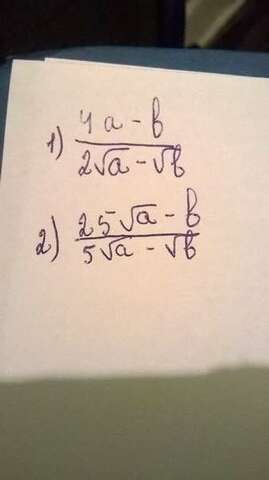 1) (4a - b) / (2√a - √b)
2) (25√a - b) / (5√a - √b)